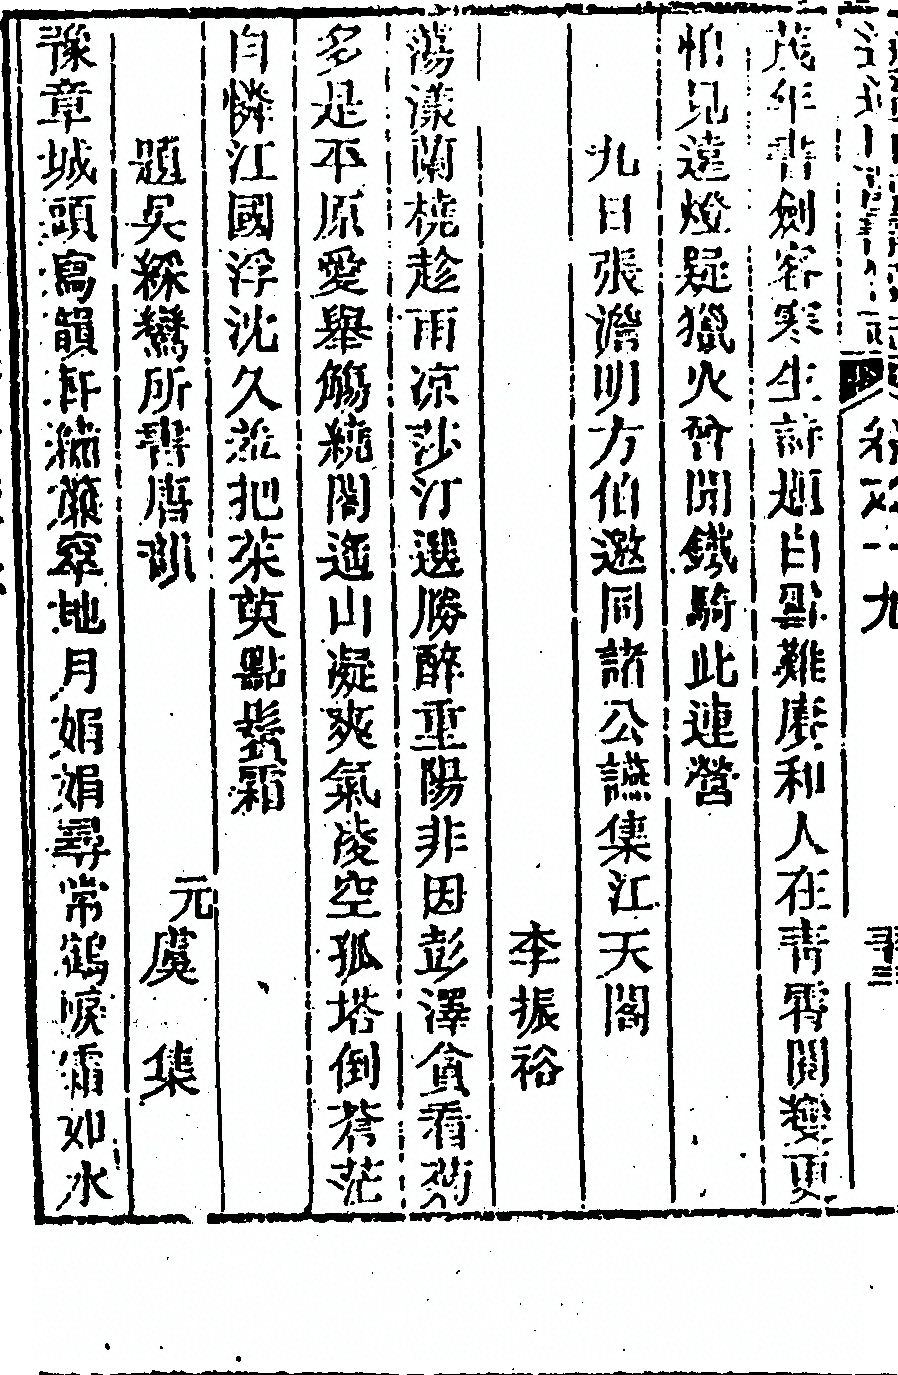 卷之一九
茂年書劍客寒生詩題白壁難賡和人在青霄閣夢更
怕見遠燈疑獵火曾聞鐵騎此連營
九日張澹明方伯邀同諸公讌集江天閣
李振裕
蕩漾蘭橈趁雨凉莎汀選勝醉重陽非因彭澤貧看菊
多是平原愛舉觴繞閣遙山凝爽氣凌空孤塔倒蒼茫
自憐江國浮沈久羞把茱萸點鬢霜
題吳綵鸞所書唐韻
元虞集
豫章城頭寫韻軒繡簾窣地月娟娟尋常鶴唳霜如水